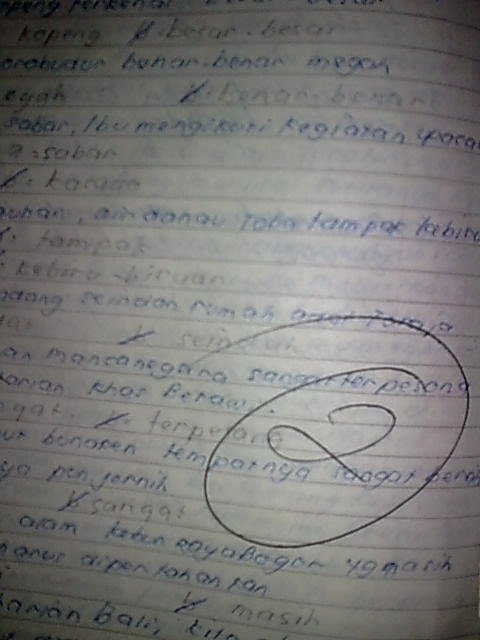 terkenal besar
kopeng k. besar-besar
orobudur benar-benar megah
egah k. benar-benar
sabar, Ibu mengikuti kegiatan upaca
a-sabar
k. karada
auhan, air danau Toba tampak kebiru
k. tampak
k. kebiru-biruan
ndang seindah rumah adat Toraja
k seindah
an mancanegara sangat terpesona
tarian khas Betawi.
ngat. k. terpesana
ut bunaken tempatnya sangat
ya penjernih
k sangat
alam kebun raya Bogor yg masih
harus dipertahankan
k masih
tarian Bali, kita